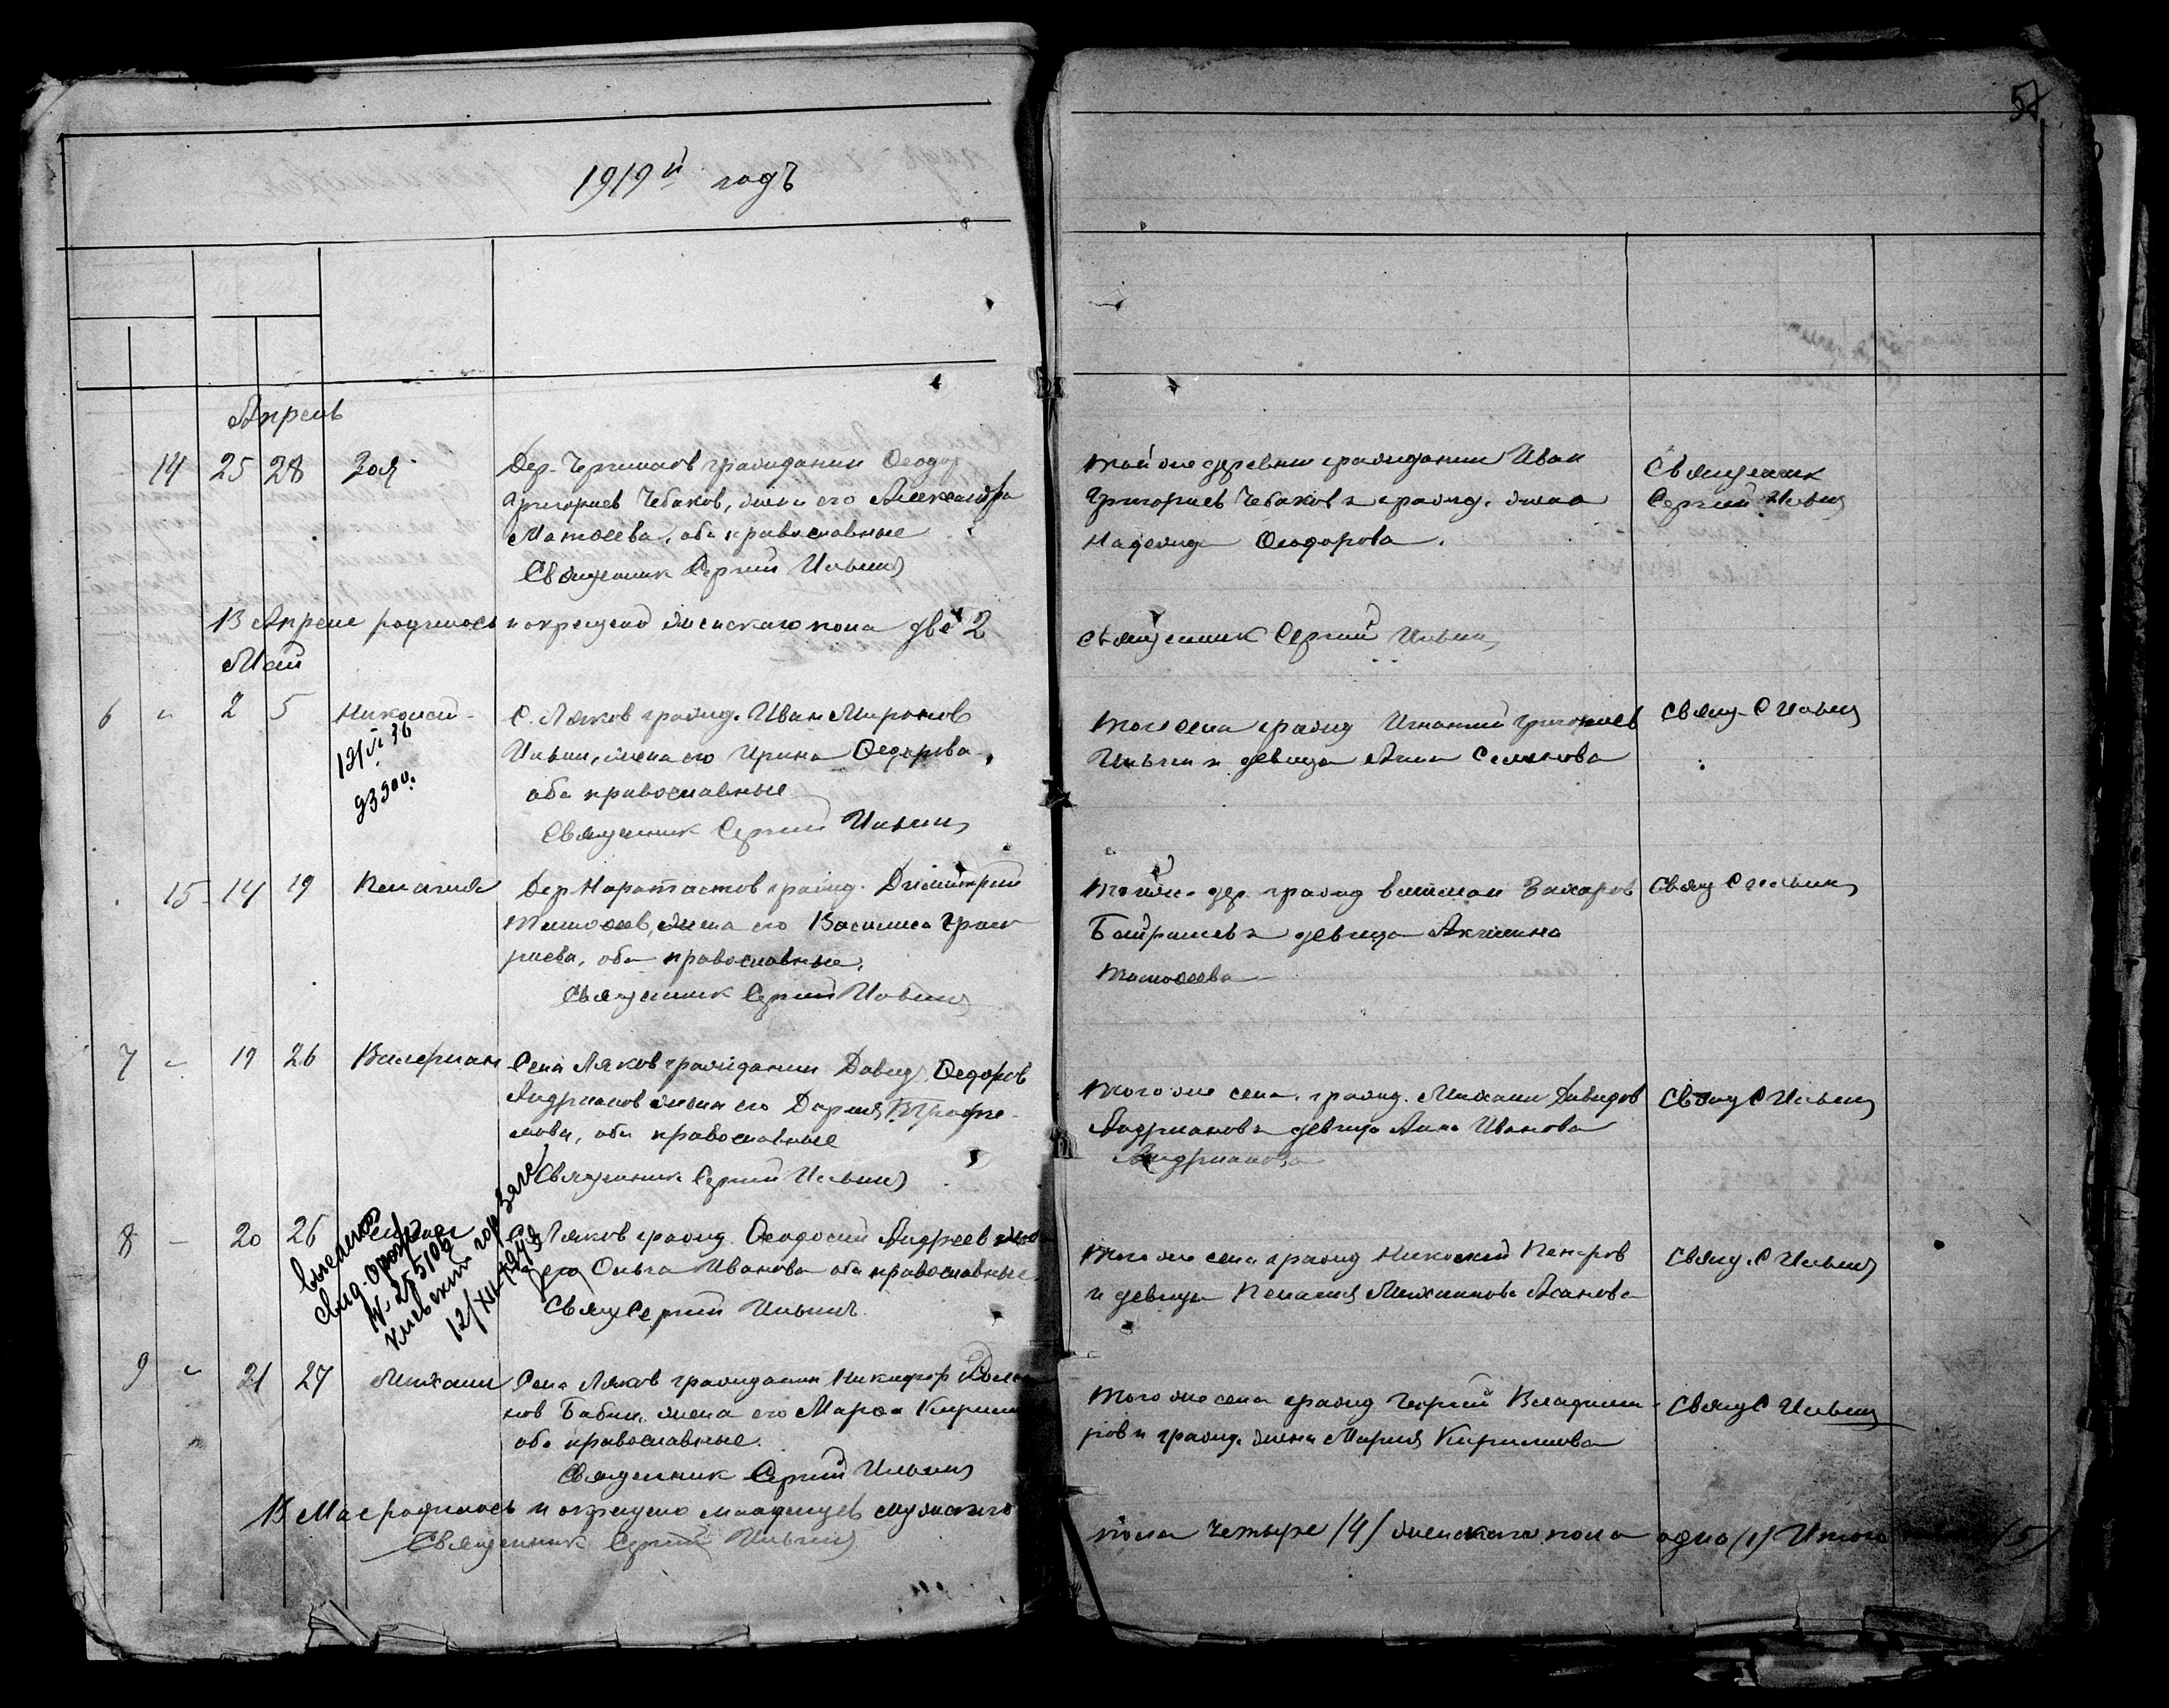 1919й годъ
Апрель
14 25 28 Зоя
Дер. гражданин Феодор
Григориев Чебаков, жена его Александра
Матфеева, оба православные
Священник Сергий Ильин
В Апреле родилось и окрещено женского пола две 2
Май
6 " 2 5 Николай
С. Ляков гражд. Иван Миронов
Ильин, жена его Ирина Федорова,
оба православные
Священник Сергий Ильин
15 14 19 Пелагия
Дер. гражд. Димитрий
Тимофеев, жена его Василиса Григо
риева, оба православные.
Священник Сергий Ильин
7 " 19 26 Валериан
Села Ляков гражданин Давид Федоров
Андрианов жена его Дария Трофи-
мова, оба православные
Священник Сергий Ильин
8 - 20 26
С. Ляков гражд. Феодосий Андреев жена
его Ольга Иванова оба православные
Свящ Сергий Ильин.
Выслано
свид. о рожд
№ 255106
12/XII-1949
9 " 21 27 Михаил
Села Ляков гражданин Никифор
нов Бабин, жена его Марфа Кирил
оба православные.
Священник Сергий Ильин
В Мае родилось и окрещено младенцев мужского
Священник Сергий Ильин
той же деревни гражданин Иван
Григориев Чебаков и гражд. жена
Надежда Феодорова.
Священник
Сергий Ильин
Священник Сергий Ильин
того села гражд Игнатий Григориев
Ильин и девица Анна Семенова
Свящ. С Ильин
той же дер. гражд Захаров
и девица Акилина
Тимофеева
Свящ С Ильин
того же села гражд. Михаил Давидов
Андрианов и девица Анна Иванова
Андрианова
Свящ С Ильин
того же села гражд Николай Петров
и девица Пелагия Михаилова Асанова
Свящ. С Ильин
того же села гражд Георгий Владими-
ров и гражд. жена Мария Кириллова
Свящ С Ильин
пола четыре /4/ женского пола одно (1) Итого (5)